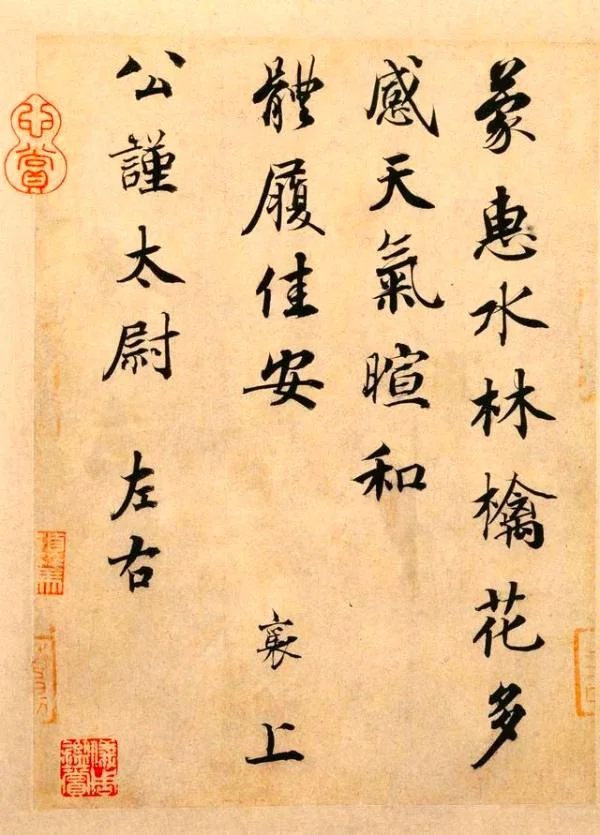 蒙惠水林檎花多
感天氣暄和
體履佳安
襄上
公謹太尉
左右